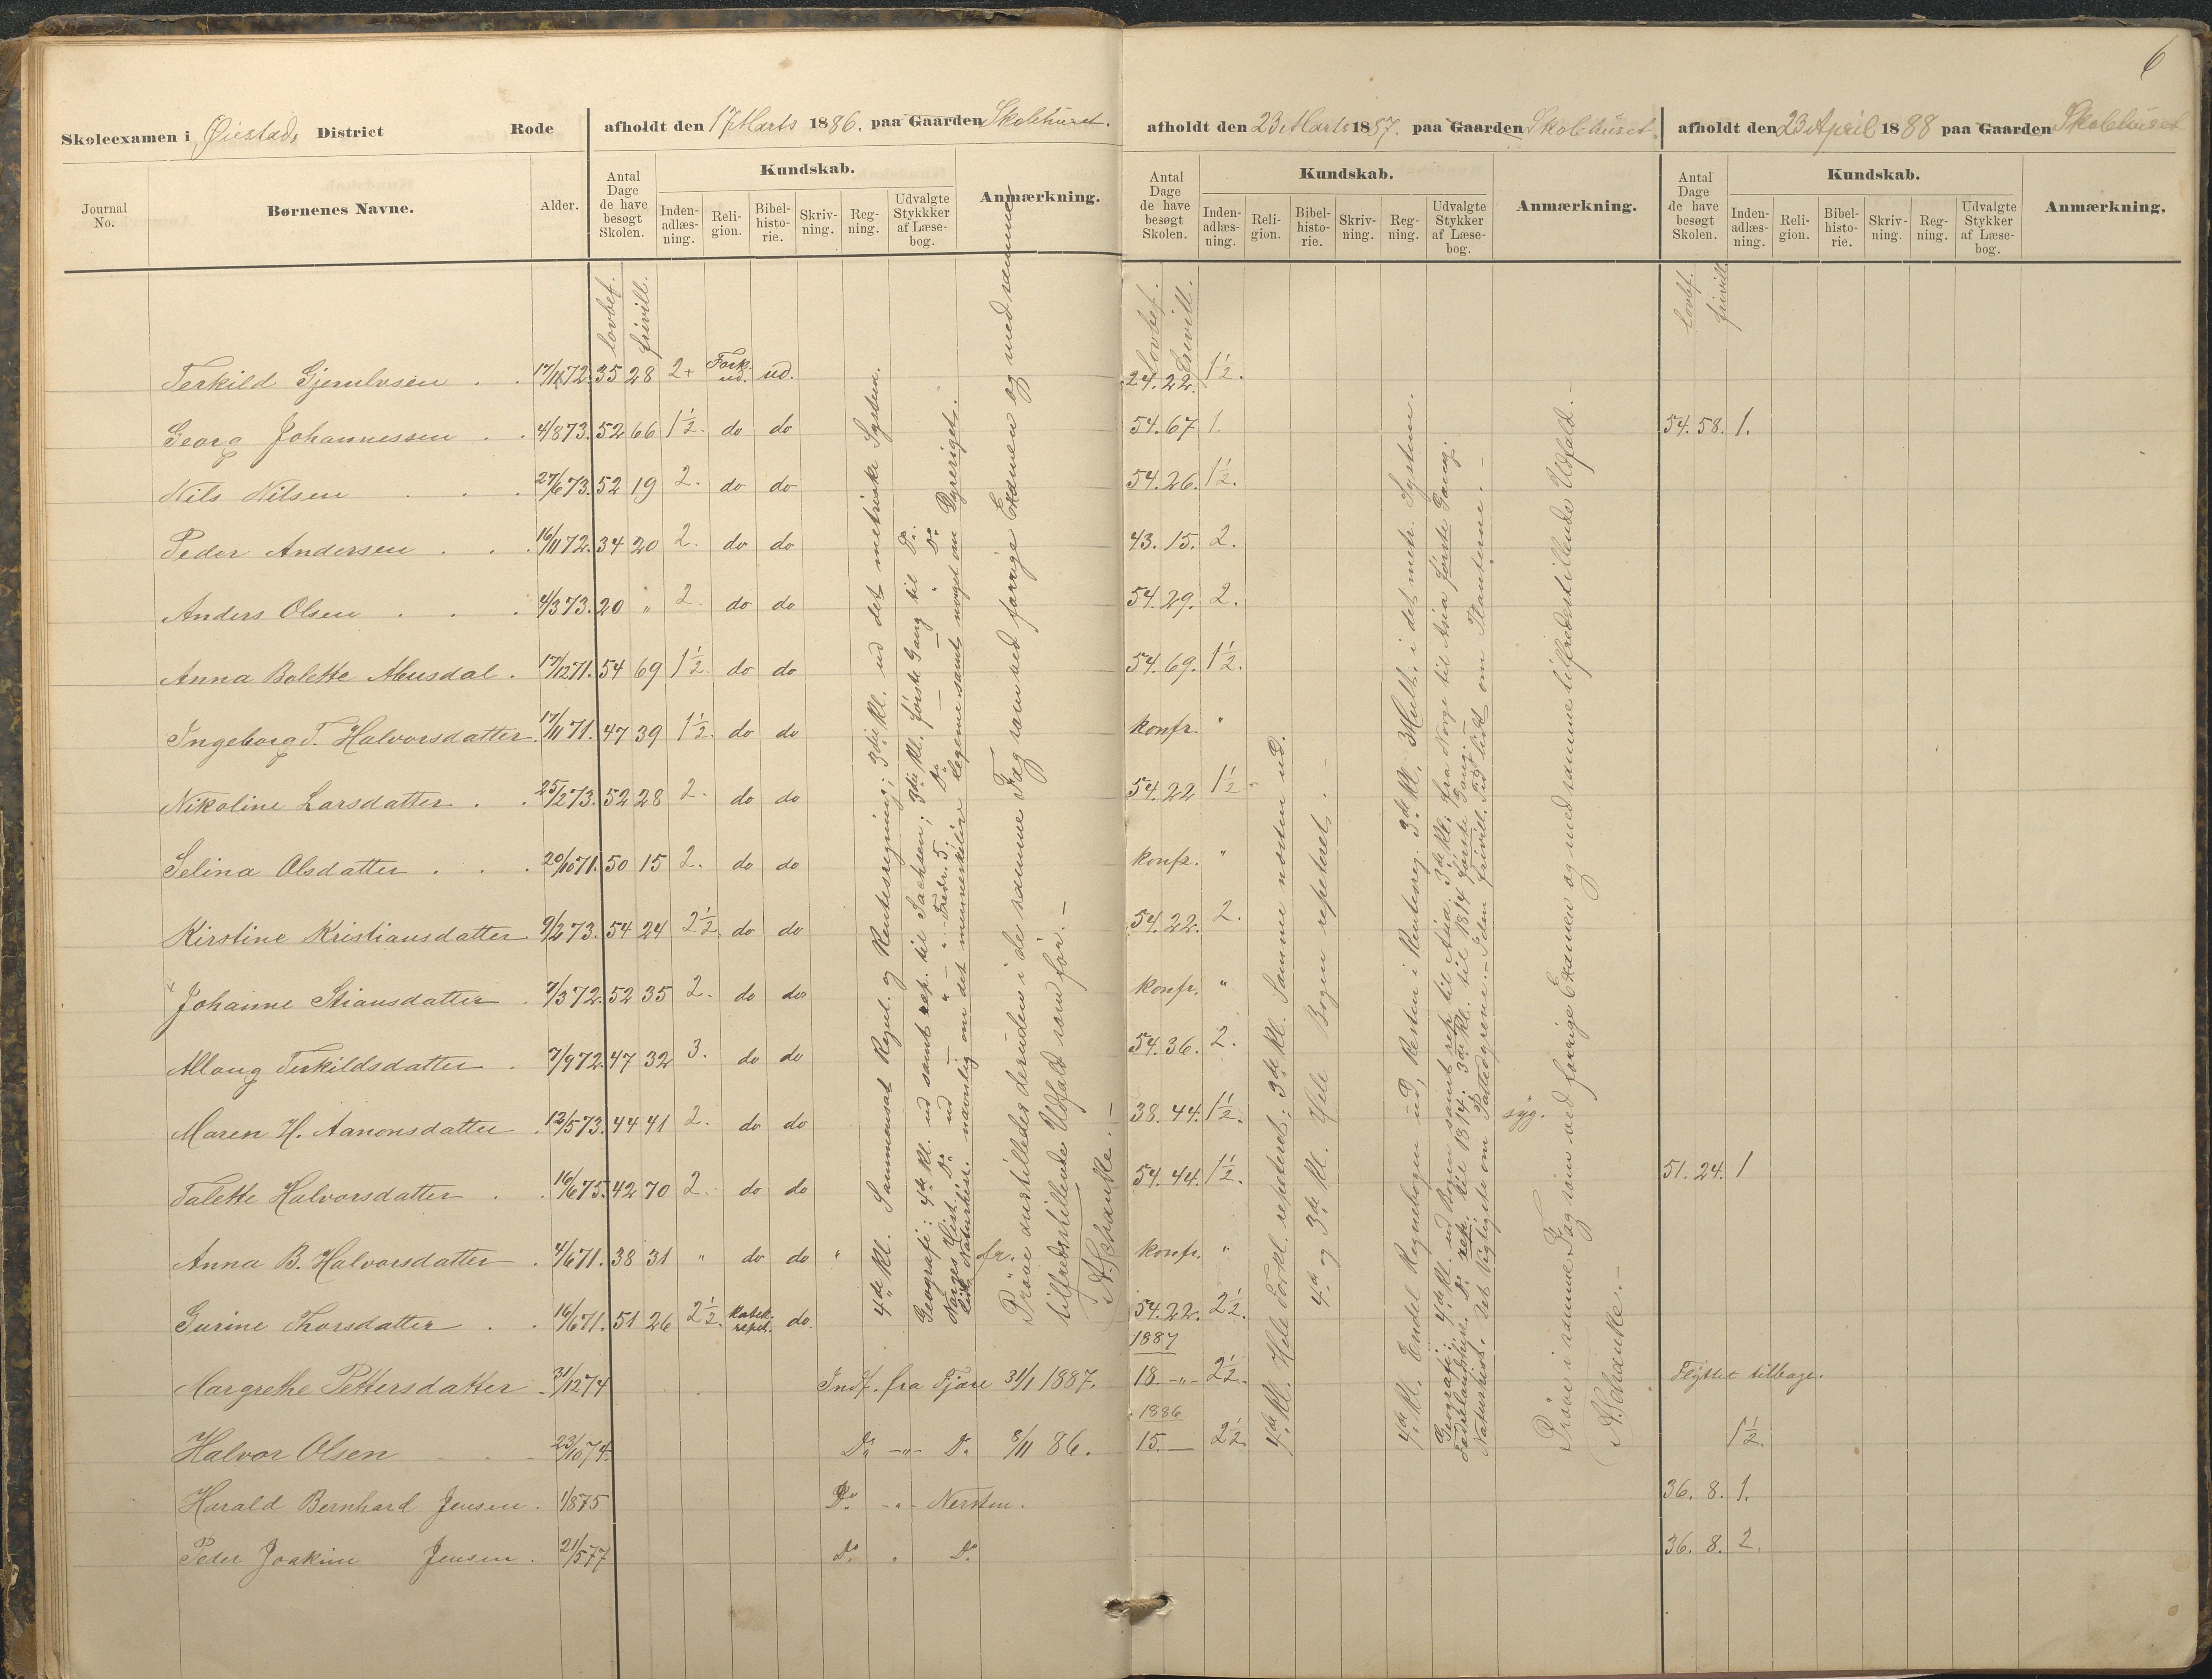 6
Skoleexamen i Øiestads District Rode afholdt den 17 Marts 1886. paa Gaarden Skolehuset. afholdt den 23 Marts 1887. paa Gaarden Skolehuset afholdt den 23 April 1888 paa Gaarden Skolehuset
Journal No. Børnenes Navne. Alder. Antal Dage de have besøgt Skolen. Kundskab. Inden-adlæs-ning. Reli-gion. Bibel-histo-rie. Skriv-ning. Reg-ning. Udvalgte Stykkker af Læse-bog. Anmærkning.
Antal Dage de have besøgt Skolen. Kundskab. Inden-adlæs-ning. Reli-gion. Bibel-histo-rie. Skriv-ning. Reg-ning. Udvalgte Stykker af Læse-bog. Anmærkning.
Antal Dage de have besøgt Skolen. Kundskab. Inden-adlæs-ning. Reli-gion. Bibel-histo-rie. Skriv-ning. Reg-ning. Udvalgte Stykker af Læse-bog. Anmærkning.
lovbef. frivill. Lovbef. Frivill. lovbf. frivill.
Terkild 17/11 72. 35 28 2+ Fork. ud. ud. 24. 22. 1½.
Georg Johannessen . . 4/8 73. 52 66 1½. do do 54. 67 1. 54. 58. 1.
Nils Nilsen . . . 27/6 73. 52 19 2. do do 54. 26. 1½.
Peder Andersen . . . 16/11 72. 34 20 2. do do 43. 15. 2.
Anders Olsen . . . 4/3 73. 20 " 2. do do 54. 29. 2.
Anna Bolette . 17/12 71. 54 69 1½. do do 54. 69. 1½.
Ingeborg T. Halvorsdatter. 17/11 71. 47 39 1½. do do konfr. "
Nikoline Larsdatter . . 25/2 73. 52 28 2. do do 54. 22 1½
Selina Olsdatter . . . 20/10 71. 50 15 2. do do konfr. "
Kirstine Kristiansdatter 9/2 73. 54 24 2½. do do 54. 22. 2.
Johanne Stiansdatter . 7/3 72. 52 35 2. do do konfr. "
Allaug Terkildsdatter . 7/9 72. 47 32 3. do do 54. 36. 2.
Maren H. Aanonsdatter . 12/5 73. 44 41 2. do do 38. 44. 1½. syg.
Talette Halvorsdatter . . 16/6 75. 42 70 2. do do 54. 44. 1½. 51. 24. 1
Anna B. Halvorsdatter . 4/6 71. 38 31 " do do " fr. konfr. "
Gurine Thorsdatter . . 16/6 71. 51 26 2½. repet. do. 54. 22. 2½.
Margrethe Pettersdatter . 31/12 74 Indf. fra Fjære 31/1 1887. 1887 18. -"- 2½. Flyttet tilbage.
Halvor Olsen . . . 23/10 74. Do -"- Do 8/11 86. 1886 15. — 2½ 1½.
Harald Bernhard Jensen . 1/8 75 Do -"- 36. 8. 1.
Peder Joakim Jensen . 21/5 77 Do " Do 36. 8. 2.
4de Kl. Sammensat Regul. og Rentesregning; 3die Kl. ud det metriske System.
Geografi: 4de Kl. ud samt rep. til Sachsen; 3die Kl. første Gang til Do.
Norges Hist. Do ud — " — " Fredr. 5. Do — " Do
Naturhist. navnlig om det menneskelige legeme samt noget om Dyreriget.
Prøve anstilledes desuden i de samme Fag som ved forrige Examen og med samme
tilfredsstillende Udfald som før. —
A. Schanke. —
4de Kl. Hele Forkl. repeteret; 3die Kl. Samme næsten ud.
4de og 3die Kl. Hele Bogen repeteret.
4de Kl. Endel Regnebogen ud, Resten i Rentesreg. 3die Kl. 3 Mult. i det metr. System.
Geografi: 4de Kl. ud Bogen samt rep. til Asia. 3die Kl. fra Norge til Asia første Gang.
Fædrelandshist. Do rep. til 1814. 3die Kl. til 1814 første Gang. —
Naturhist. Det Vigtigste om Pattedyrene. — I den frivill. Tid lidt om Planterne. —
Prøve i samme Fag som ved forrige Examen og med samme tilfredsstillende Udfald. —
A. Schanke. —